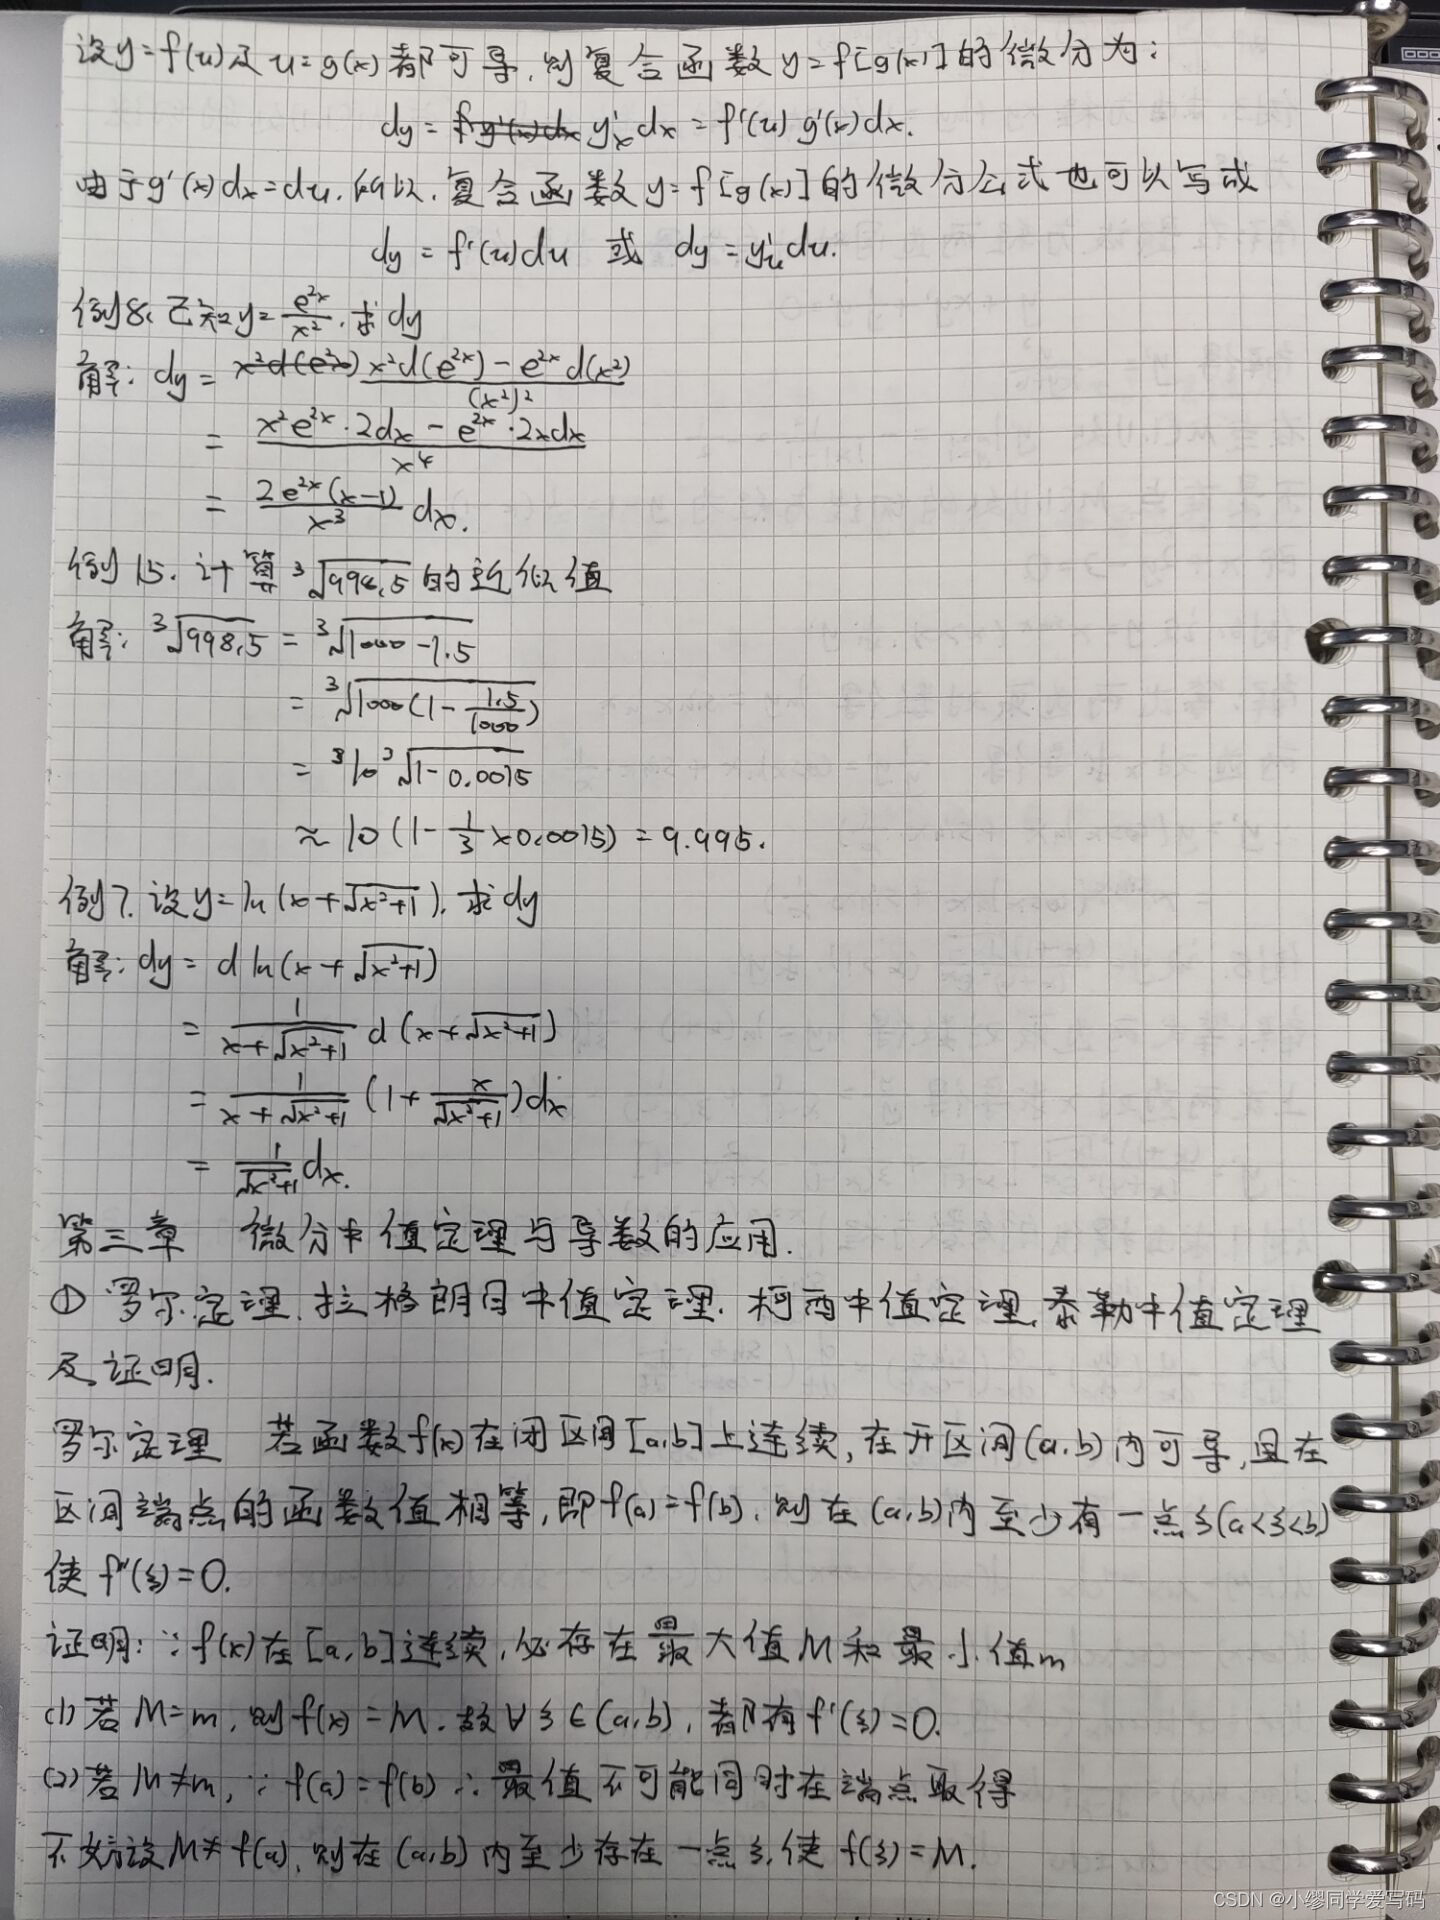 设y=f(u)及u=g(x)都可导,则复合函数y=f[g(x)]的微分为:
dy = y'ₓdx = f'(u)g'(x)dx.
由于g'(x)dx=du.所以.复合函数y=f[g(x)]的微分公式也可以写成
dy = f'(u)du 或 dy = y'ᵤdu.
例8、已知y=e^{2x}/x².求dy
解: dy = x²d(e^{2x}) (x²d(e^{2x}) - e^{2x}d(x²))/(x²)²
= (x²e^{2x}·2dx - e^{2x}·2xdx)/x⁴
= 2e^{2x}(x-1)/x³ dx.
例15.计算³√998.5的近似值
解: ³√998.5 = ³√(1000-1.5)
= ³√(1000(1-1.5/1000))
= 10³√(1-0.0015)
≈ 10(1-1/3×0.0015) = 9.995.
例7.设y=ln(x+√(x²+1)).求dy
解: dy = d ln(x+√(x²+1))
= 1/(x+√(x²+1)) d(x+√(x²+1))
= 1/(x+√(x²+1)) (1+x/√(x²+1))dx
= 1/√(x²+1) dx.
第三章 微分中值定理与导数的应用.
① 罗尔定理.拉格朗日中值定理.柯西中值定理.泰勒中值定理
及证明.
罗尔定理 若函数f(x)在闭区间[a,b]上连续,在开区间(a,b)内可导,且在
区间端点的函数值相等,即f(a)=f(b).则在(a,b)内至少有一点ξ(a<ξ<b)
使f''(ξ)=0.
证明:∵f(x)在[a,b]连续,必存在最大值M和最小值m
(1)若M=m,则f(x)=M.故∀ξ∈(a,b),都有f'(ξ)=0.
(2)若M≠m,∵f(a)=f(b)∴最值不可能同时在端点取得
不妨设M≠f(a),则在(a,b)内至少存在一点ξ.使f(ξ)=M.
CSDN @小缪同学爱写码